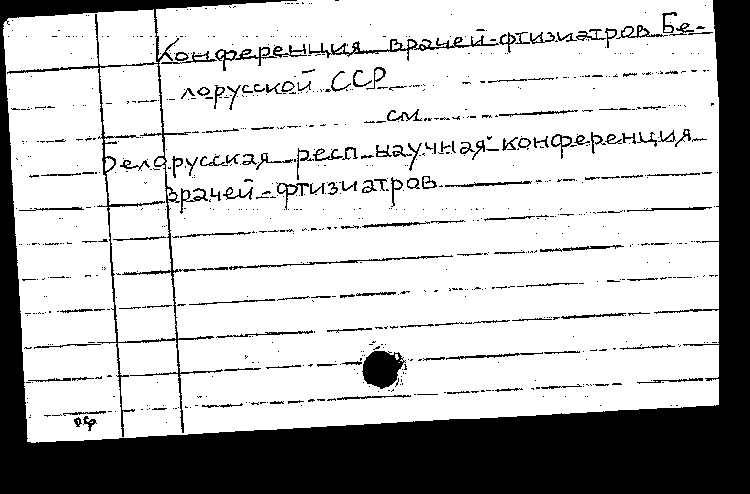 Конференция врачей-фтизиатров Бе-
лорусской ССР
см
Белорусская респ научная конференция
врачей-фтизиатров